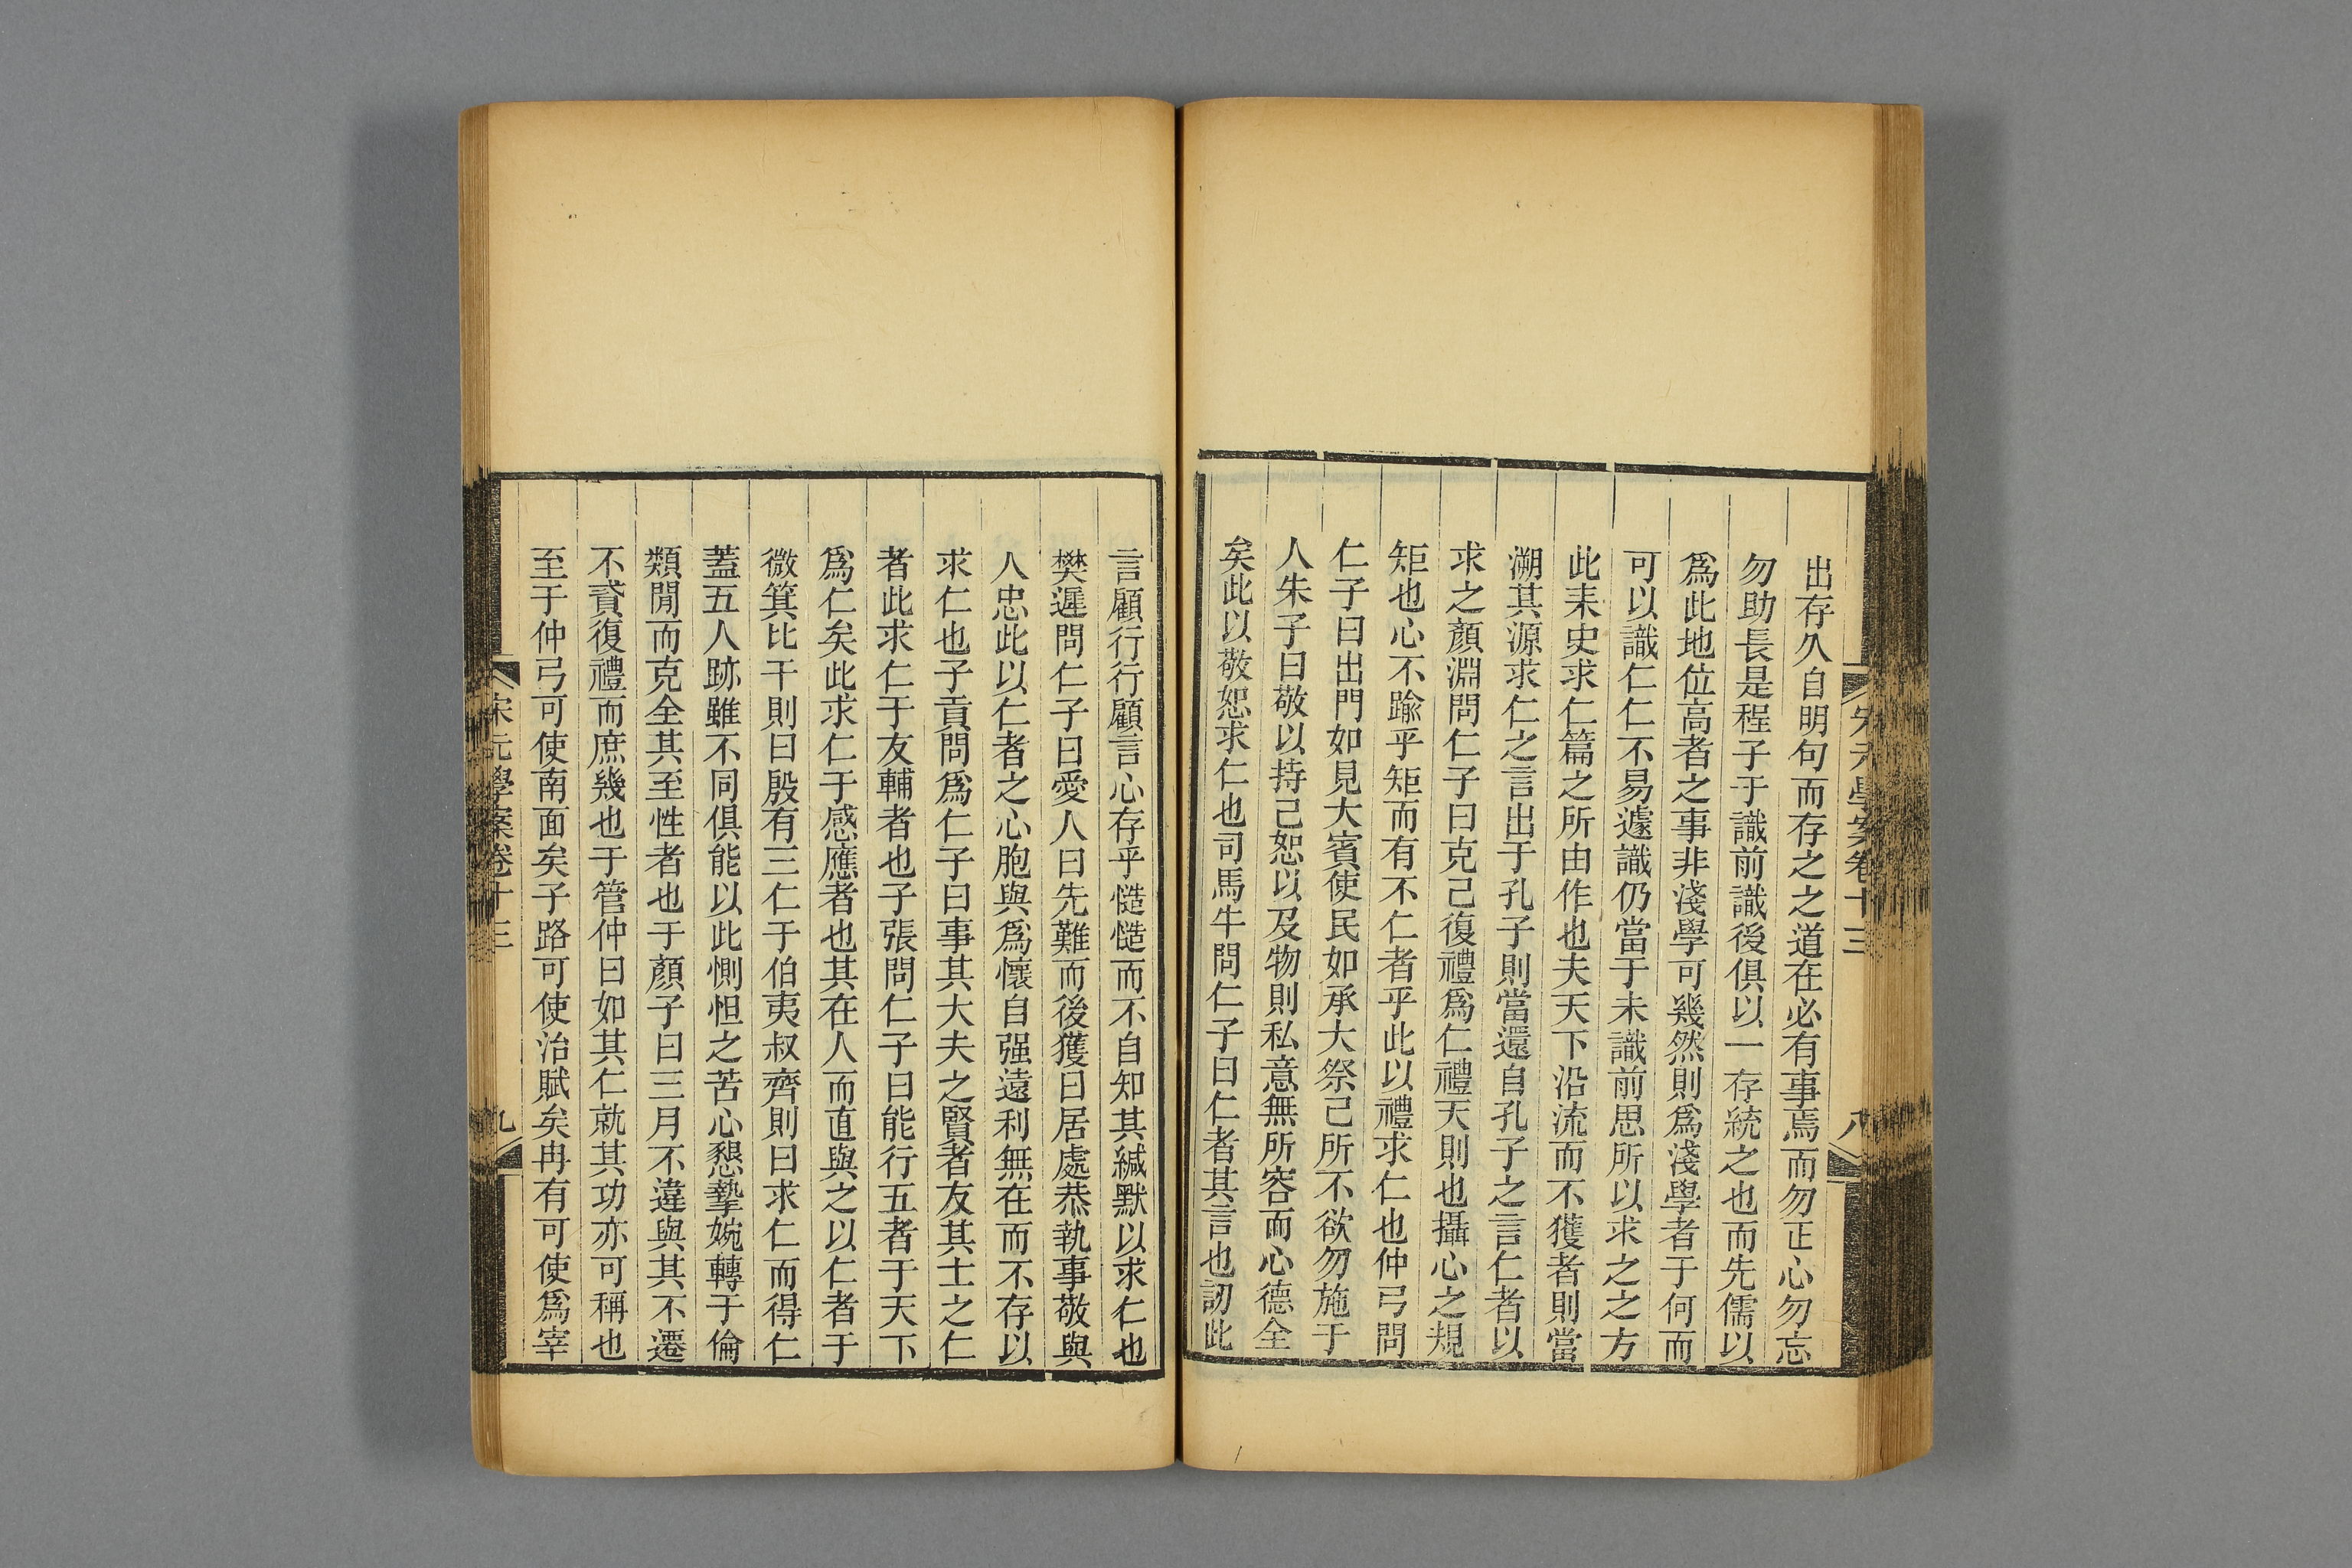 宋元學案卷十三
八
出存久自明句而存之之道在必有事焉而勿正心勿忘
勿助長是程子于識前識後俱以一存統之也而先儒以
爲此地位高者之事非淺學可幾然則爲淺學者于何而
可以識仁仁不易遽識仍當于未識前思所以求之之方
此耒史求仁篇之所由作也夫天下沿流而不獲者則當
溯其源求仁之言出于孔子則當還自孔子之言仁者以
求之顏淵問仁子曰克己復禮爲仁禮天則也攝心之規
矩也心不踰乎矩而有不仁者乎此以禮求仁也仲弓問
仁子曰出門如見大賓使民如承大祭己所不欲勿施于
人朱子曰敬以持己恕以及物則私意無所容而心德全
矣此以敬恕求仁也司馬牛問仁子曰仁者其言也訒此
言顧行行顧言心存乎慥慥而不自知其緘默以求仁也
樊遲問仁子曰愛人曰先難而後獲曰居處恭執事敬與
人忠此以仁者之心胞與爲懷自强遠利無在而不存以
求仁也子貢問爲仁子曰事其大夫之賢者友其士之仁
者此求仁于友輔者也子張問仁子曰能行五者于天下
爲仁矣此求仁于感應者也其在人而直與之以仁者于
微箕比干則曰殷有三仁于伯夷叔齊則曰求仁而得仁
蓋五人跡雖不同俱能以此惻怛之苦心懇摯婉轉于倫
類閒而克全其至性者也于顏子曰三月不違與其不遷
不貳復禮而庶幾也于管仲曰如其仁就其功亦可稱也
至于仲弓可使南面矣子路可使治賦矣冉有可使爲宰
宋元學案卷十三
九